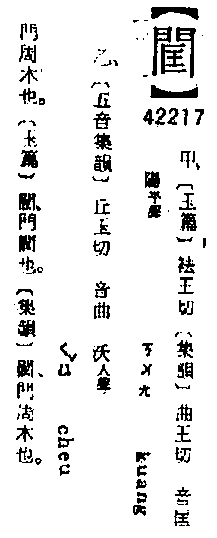 【】
42217
甲、〔玉篇〕袪王切〔集韻〕曲王切 音匡
陽平聲 ㄎㄨㄤ kuang
乙、〔五音集韻〕丘玉切 音曲 沃入聲
ㄑㄩ cheu
門周木也。〔玉篇〕、門也。〔集韻〕、門周木也。